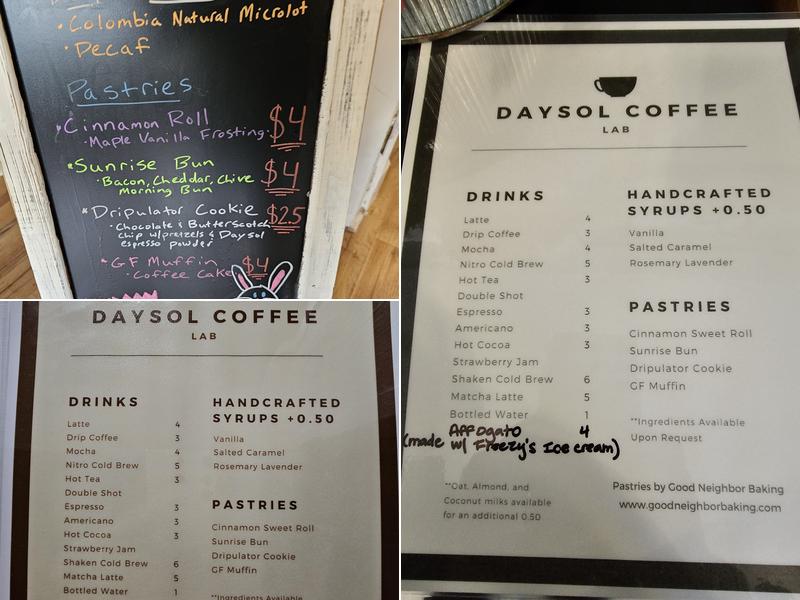 Colombia Natural Microlot
Decaf
Pastries
Cinnamon Roll $4
Maple Vanilla Frosting
Sunrise Bun $4
Bacon, Cheddar, Chive
Morning Bun
Dripulator Cookie $2.5
Chocolate & Butterscotch
chip w/pretzels & Daysol
espresso powder
GF Muffin $4
Coffee Cake
DAYSOL COFFEE
LAB
DRINKS
Latte 4
Drip Coffee 3
Mocha 4
Nitro Cold Brew 5
Hot Tea 3
Double Shot
Espresso 3
Americano 3
Hot Cocoa 3
Strawberry Jam
Shaken Cold Brew 6
Matcha Latte 5
Bottled Water 1
HANDCRAFTED
SYRUPS +0.50
Vanilla
Salted Caramel
Rosemary Lavender
PASTRIES
Cinnamon Sweet Roll
Sunrise Bun
Dripulator Cookie
GF Muffin
**Ingredients Available
DAYSOL COFFEE
LAB
DRINKS
Latte 4
Drip Coffee 3
Mocha 4
Nitro Cold Brew 5
Hot Tea 3
Double Shot
Espresso 3
Americano 3
Hot Cocoa 3
Strawberry Jam
Shaken Cold Brew 6
Matcha Latte 5
Bottled Water 1
Affogato 4
(made w/ Freezy's Ice cream)
**Oat, Almond, and
Coconut milks available
for an additional 0.50
HANDCRAFTED
SYRUPS +0.50
Vanilla
Salted Caramel
Rosemary Lavender
PASTRIES
Cinnamon Sweet Roll
Sunrise Bun
Dripulator Cookie
GF Muffin
**Ingredients Available
Upon Request
Pastries by Good Neighbor Baking
www.goodneighborbaking.com